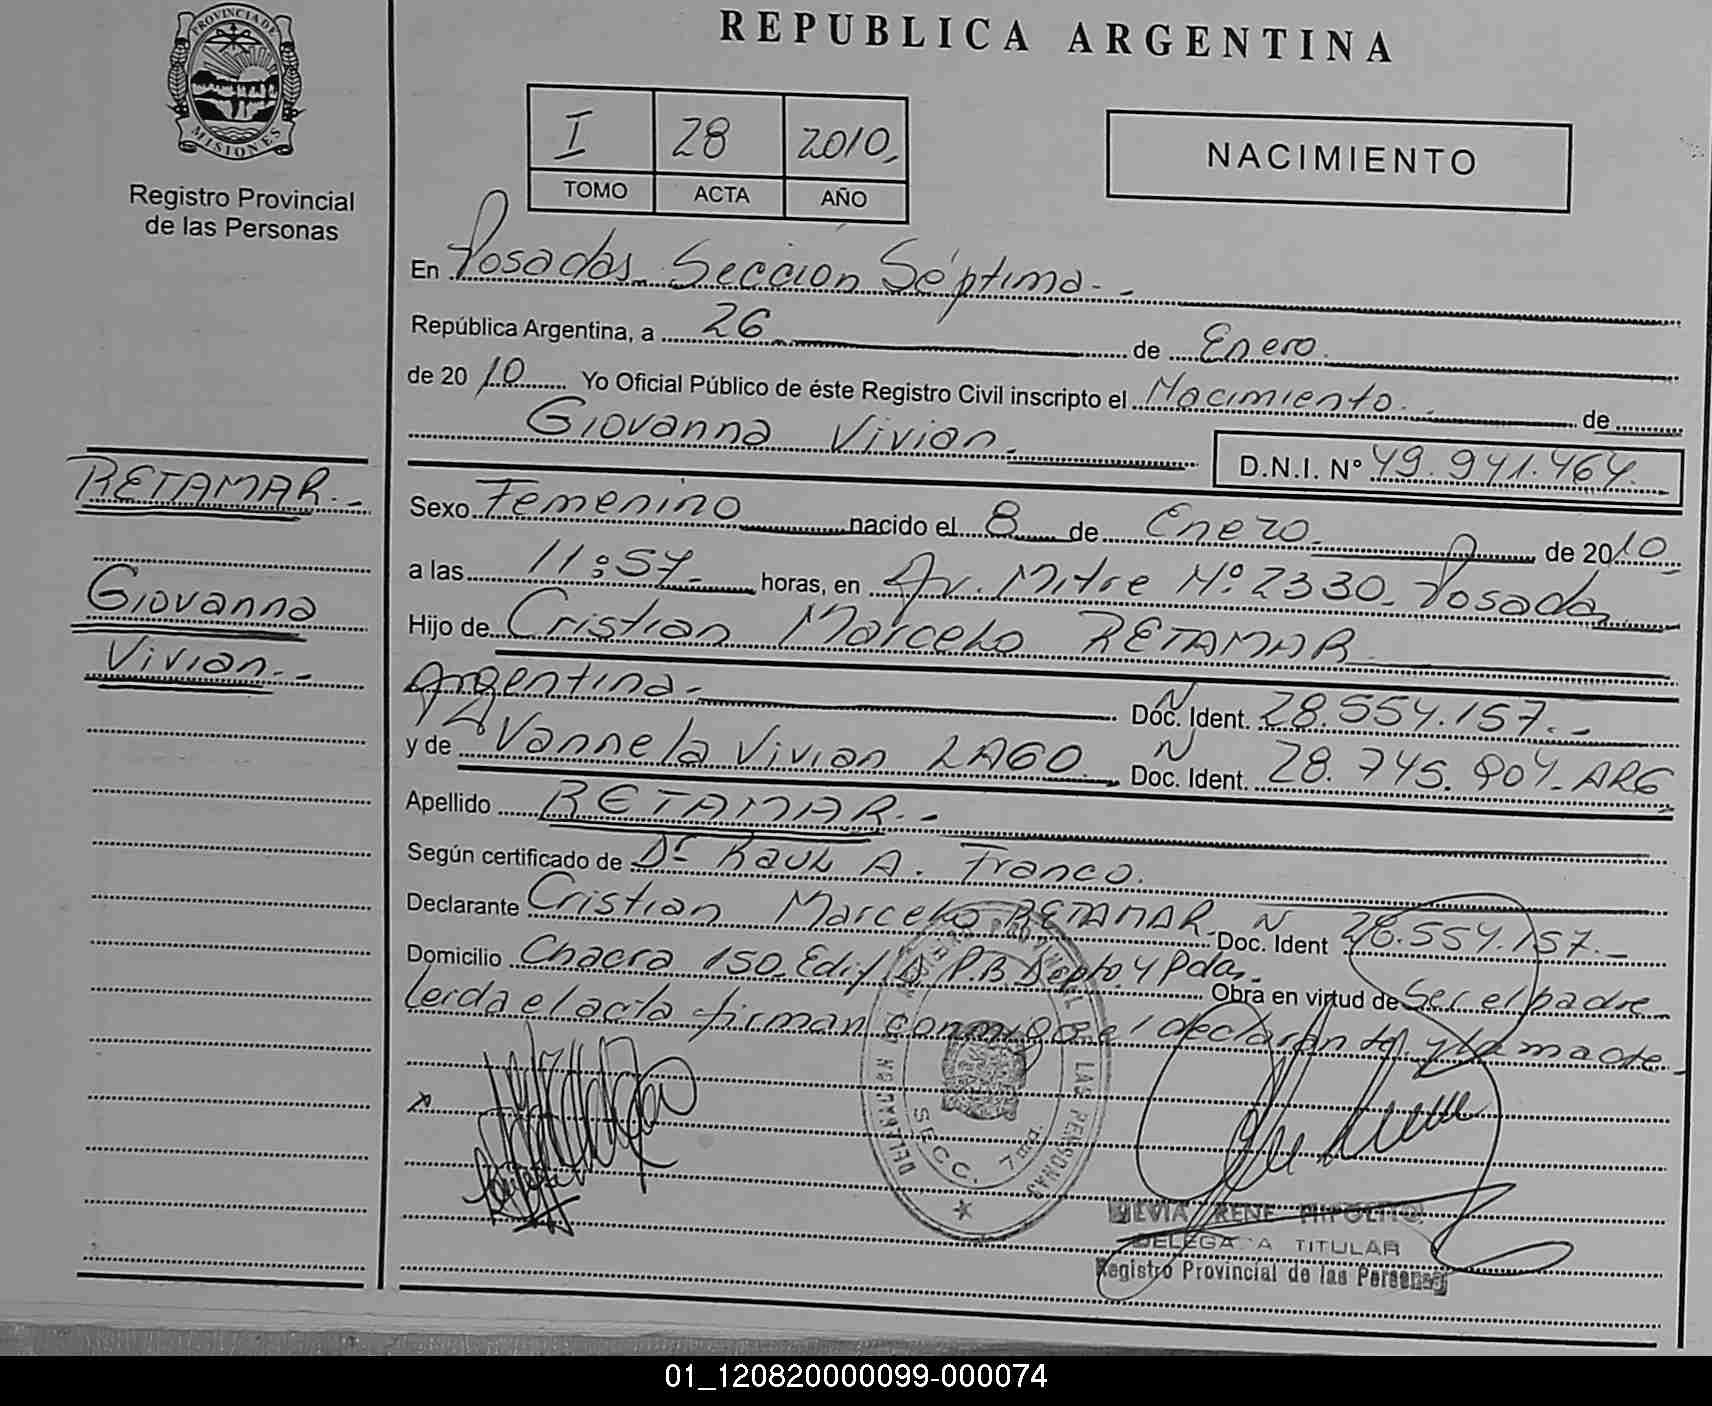 PROVINCIA DE
MISIONES
Registro Provincial
de las Personas
REPUBLICA ARGENTINA
I 28 2010
TOMO ACTA AÑO
NACIMIENTO
En Posadas Sección Séptima.-
República Argentina, a 26 de Enero
de 2010 Yo Oficial Público de éste Registro Civil inscripto el Nacimiento de
Giovanna Vivian D.N.I. Nº 49.941.464.
Sexo Femenino nacido el 8 de Enero de 2010
a las 11:57 horas, en Av. Mitre Nº 2330. Posadas
Hijo de Cristian Marcelo RETAMAR
Argentina.- Doc. Ident. 28.554.157.-
y de Vannela Vivian LAGO Doc. Ident. 28.745.904. ARG
Apellido RETAMAR.-
Según certificado de Dr Raul A. Franco.
Declarante Cristian Marcelo RETAMAR. Doc. Ident 28.554.157.-
Domicilio Chacra 150. Edif A P.B. Depto. 4 Pdas. Obra en virtud de Ser el padre
leída el acta firman conmigo el declarante y la madre.
RETAMAR.-
Giovanna
Vivian.-
x
SECC. 7ma.
LAS PERSONAS
IRENE HIPOLITO
DELEGADA TITULAR
Registro Provincial de las Personas
01_120820000099-000074